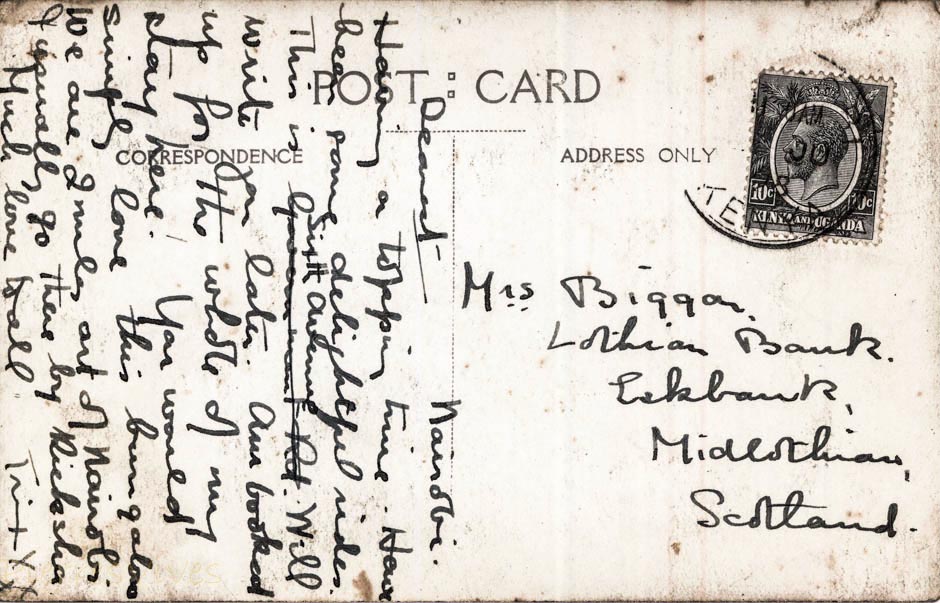 POST CARD
CORRESPONDENCE
ADDRESS ONLY
Nairobi.
Dearest
Having a topping time. Have
been some delightful rides.
This is Government Rd. Will
Sixth Avenue
write you later. Am booked
up for the whole of my
stay here. You would
simply love this bungalow
We are 2 miles out of Nairobi.
I usually go there by Ricksha
Much love to all Trix XX
10c 10c
KENYA AND UGANDA
Mrs Biggar,
Lothian Bank.
Eskbank,
Midlothian,
Scotland.